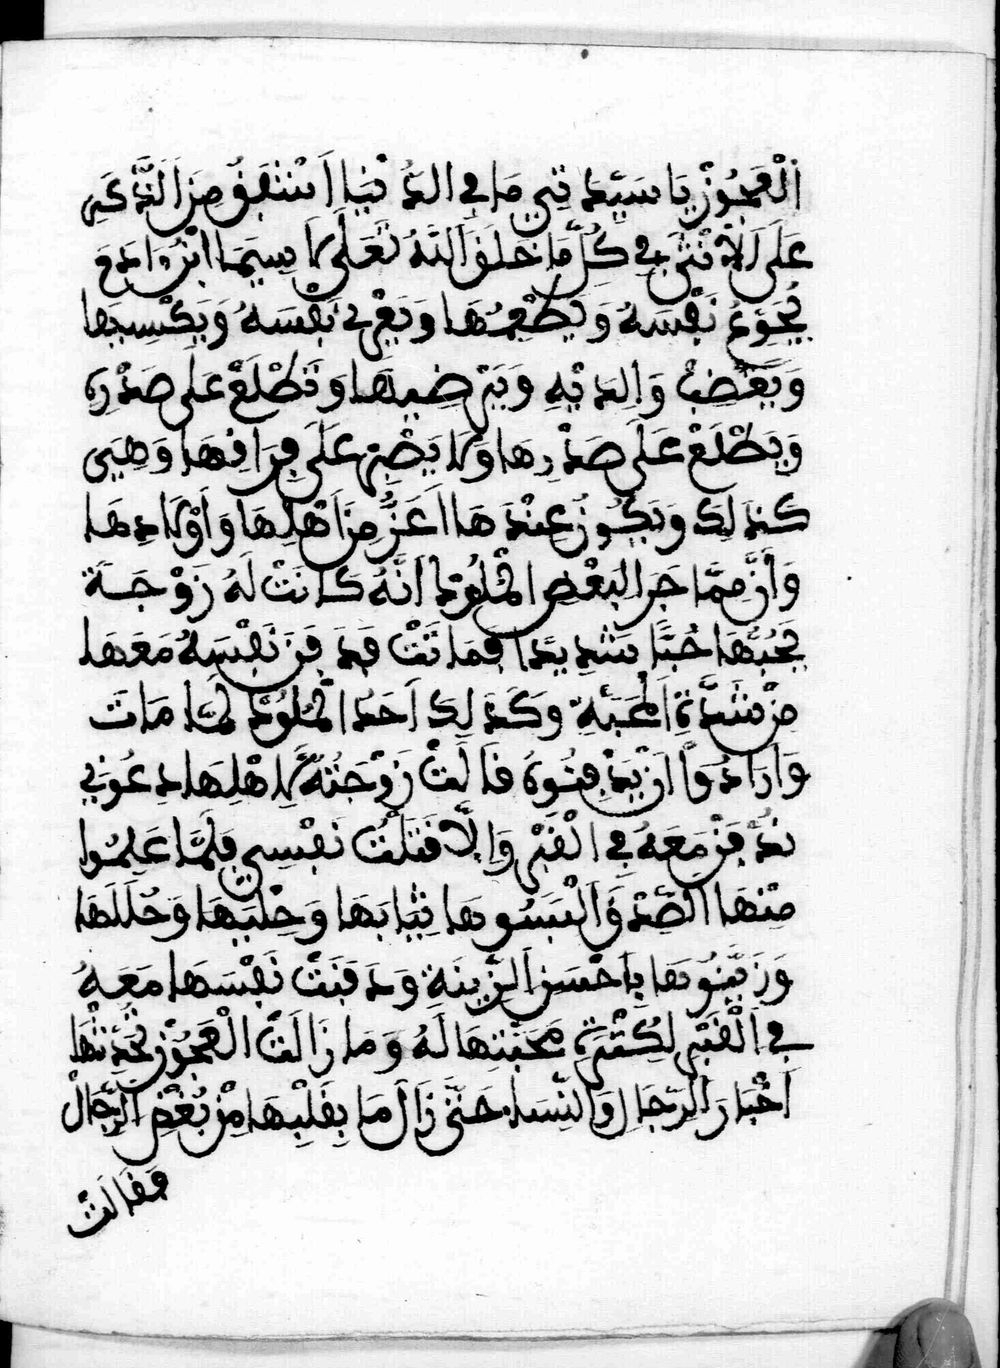 الْعَجُوزْ يَا سَيِّدَتِي مَا فِي الدُّنْيَا أَشْفَقُ مِنَ الذَّكَرِ
عَلَى الْأُنْثَى فِي كُلِّ مَا خَلَقَ اللَّهُ تَعَلَى لَا سِيَمَا ابْنُ ءَادَمَ
يُجَوِّعُ نَفْسَهُ وَيُطْعِمُهَا وَيَعْرِي نَفْسَهُ وَيَكْسِيهَا
وَيَغْضِبْ وَالِدَتِهِ وَيَرْضِيهَا وَتَطْلَعْ عَلَى صَدْرِهِ
وَيَطْلَعْ عَلَى صَدْرِهَا وَلَا يَصْبِرْ عَلَى فِرَاقِهَا وَهِيَ
كَذَلِكَ وَيَكُونُ عِنْدَهَا أَعَزُّ مِنْ أَهْلِهَا وَأَوْلَادِهَا
وَأَنَّ مِمَّا جَرَا لِبَعْضِ الْمُلُوكِ أَنَّهُ كَانَتْ لَهُ زَوْجَةً
يُحِبُّهَا حُبًّا شَدِيدًا فَمَاتَتْ فَدَفَنَ نَفْسَهُ مَعَهَا
مِنْ شِدَّةِ الْمَحَبَّةِ وَكَذَلِكَ أَحَدُ الْمُلُوكِ لَمَّا مَاتَ
وَارَادُوا أَنْ يَدْفِنُوهُ قَالَتْ زَوْجَتُهُ لِأَهْلِهَا دَعُونِي
نُدْفَنْ مَعَهُ فِي الْقَبْرِ وَإِلَّا قَتَلْتُ نَفْسِي فَلَمَّا عَلِمُوا
مِنْهَا الصِّدْقَ أَلْبَسُوهَا ثِيَابَهَا وَحُلِيَّهَا وَحُلَلَهَا
وَزَيَّنُوهَا بِأَحْسَنِ الزِّينَةِ وَدَفَنَتْ نَفْسَهَا مَعَهُ
فِي الْقَبْرِ لِكُثْرَةِ مَحَبَّتِهَا لَهُ وَمَا زَالَتْ الْعَجُوزْ تُحَدِّثُهَا
أَخْبَارَ الرِّجَالِ وَالنِّسَاءِ حَتَّى زَالَ مَا بِقَلْبِهَا مِنْ بُغْضِ الرِّجَالْ
وَقَالَتْ